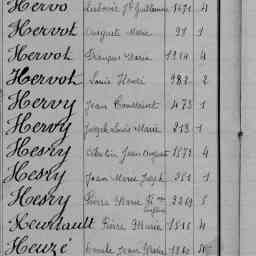 Hervo Guillaume 4
Hervot Auguste Marie 91 1
Hervot François Marie 4
Hervot Louis Henri 983 2
Hervy Jean Toussaint 473 1
Hervy Joseph Louis Marie 213 1
Hesry Célestin Jean August 1572 4
Hesry Jean Marie Joseph 351 1
Hesry Pierre Marie 2269 5
Heurtault Pierre Marie 1515 4
Heuzé Jean